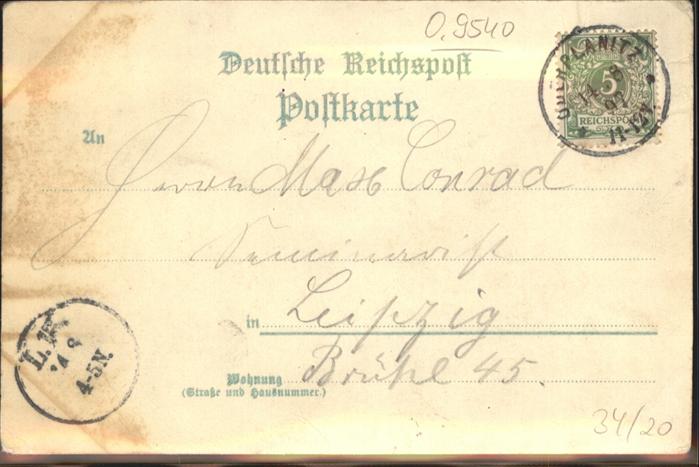 0.9540
Deutsche Reichspost
Postkarte
OBERPLANITZ
5
REICHSPOST
11-12V
An
Herrn Max Conrad
Seminarist
in Leipzig
Wohnung Brühl 45
(Straße und Hausnummer.)
4-5N.
34/20